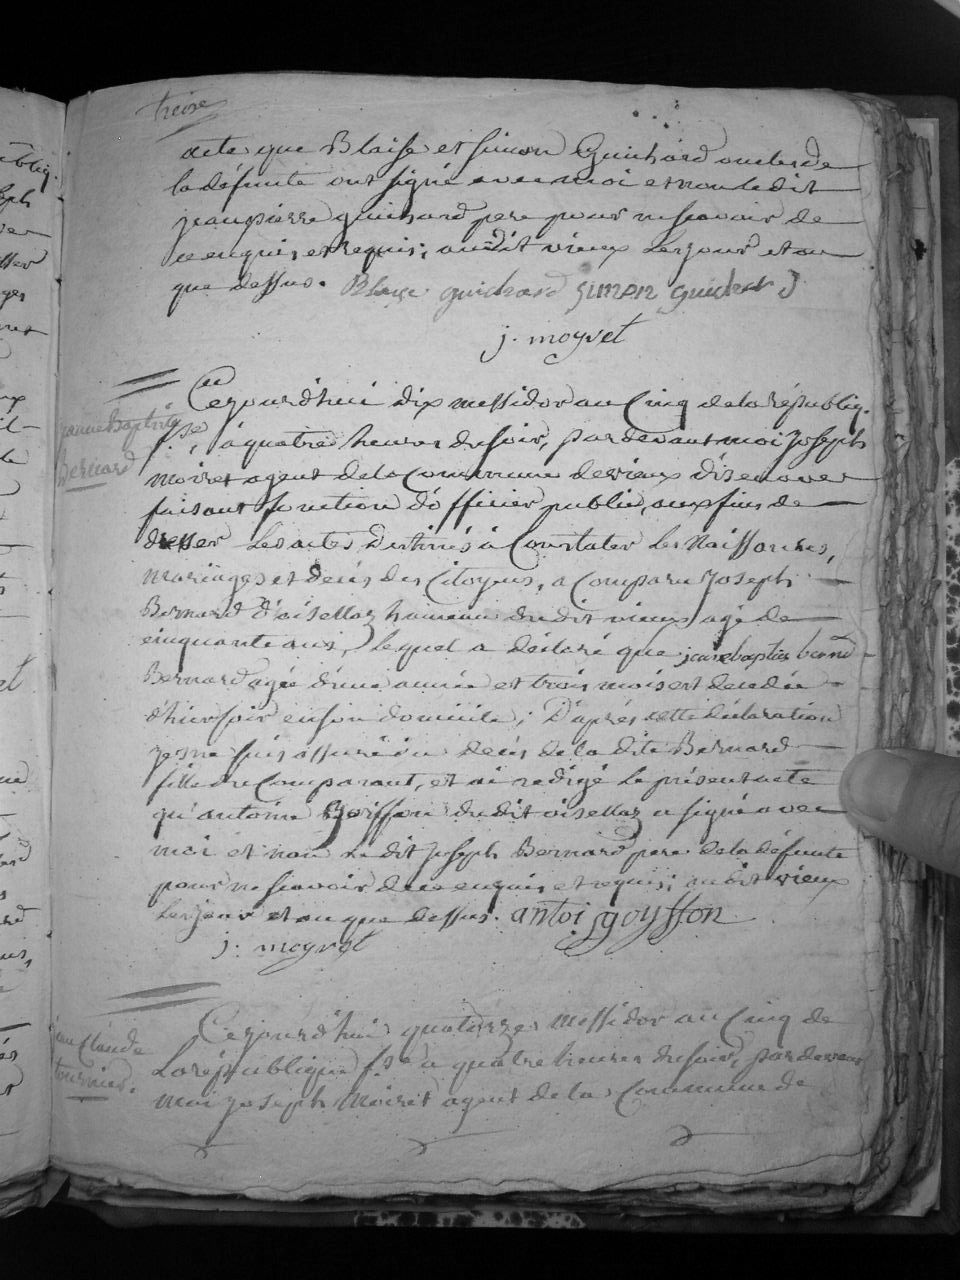 treize
acte que Blaise et Simon Guichard oncles de
la défunte ont signé avec moi et non ledit
jean pierre guichard pere pour ne scavoir de
ce enquis et requis; audit vieux les jour et an
que dessus. Blaise guichard simon guichard
j. moyret
Cejourd'hui dix messidor an Cinq de la républiq.
jeanne Baptiste
Bernard
f.se, à quatre heures du soir, pardevant moi joseph
moiret agent de la Commune de vieux d'isenave
faisant fonction d'officier public, aux fins de
dresser les actes destinés à Constater les Naissances,
mariages et décès des Citoyens, a Comparu joseph
Bernard d'oisellaz hameau du dit vieux agé de
cinquante ans, lequel a déclaré que jeane baptiste
Bernard agée d'une année et trois mois est décédée
d'hier soir en son domicile; D'après cette déclaration
je me suis assuré du décès de la dite Bernard
fille du Comparant, et ai redigé le présent acte
qu'antoine goiffon du dit oisellaz a signé avec
moi et non le dit joseph Bernard pere de la défunte
pour ne scavoir de ce enquis et requis; au dit vieux
les jour et an que dessus. antoi goyffon
j. moyret
Cejourd'hui quatorze Messidor an Cinq de
jean Claude
tournier.
La république f.se a quatre heures du soir, par devant
moi joseph Moiret agent de la Commune de